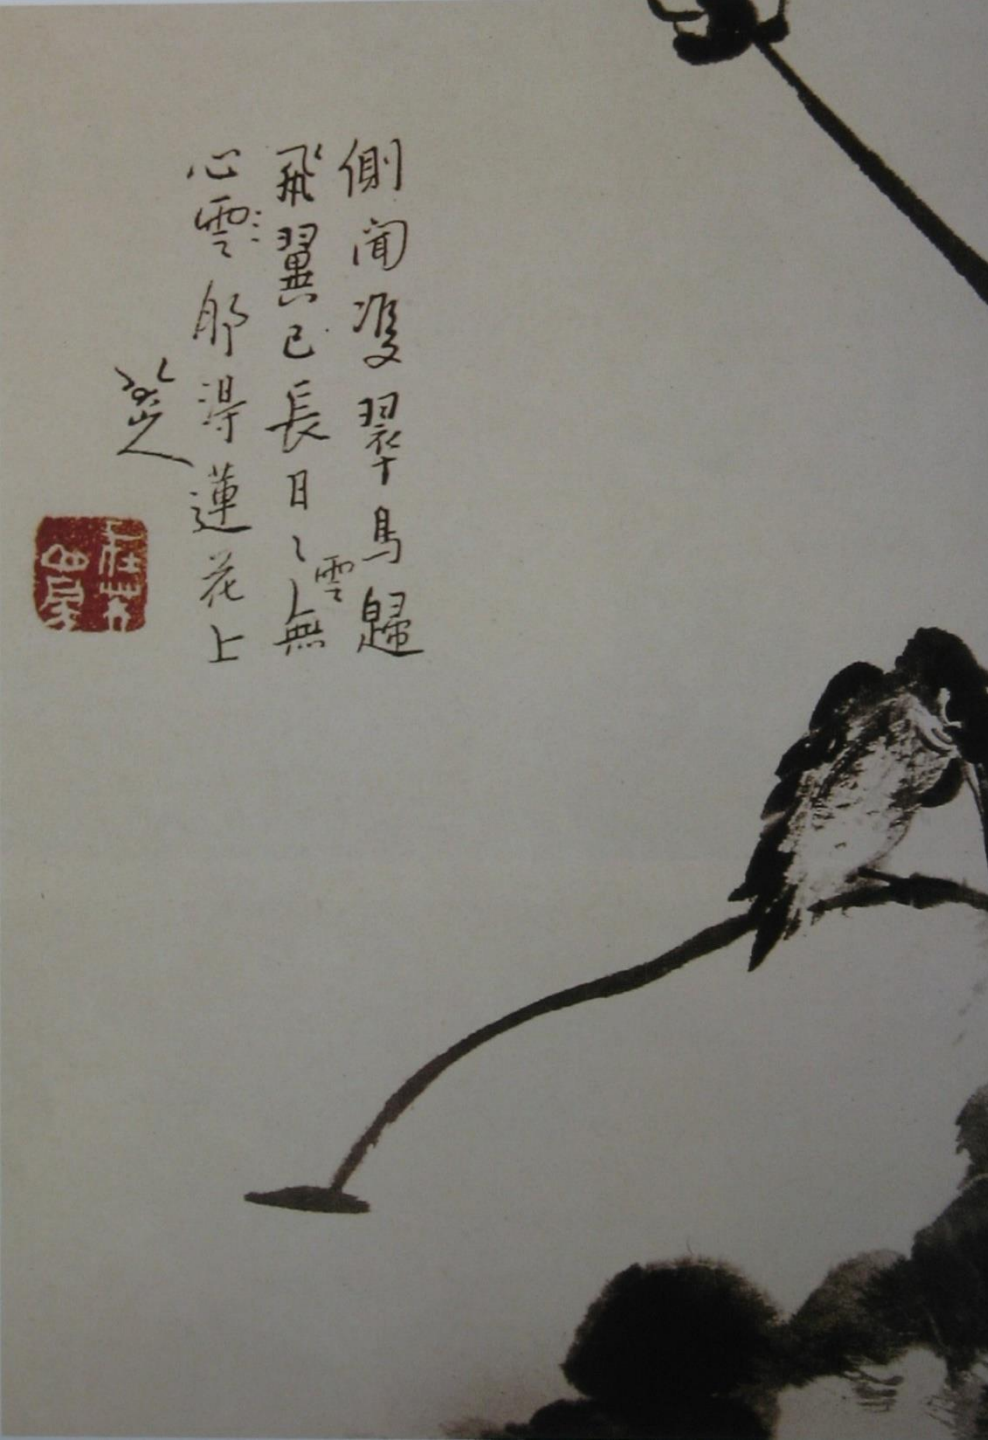 側聞雙翠鳥歸
飛翼已長日〻雲無
心雲那得蓮花上
八大山人